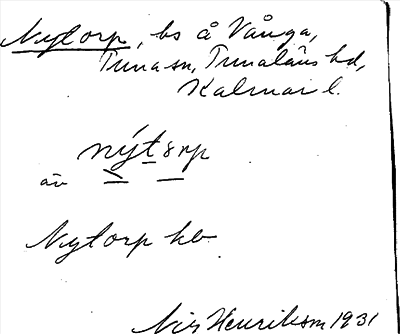 Nytorp, bs å Vånga,
Tuna sn, Tunaläns hd,
Kalmar l.
nýt8rp
än
Nytorp kb
Nils Henriksson 1931